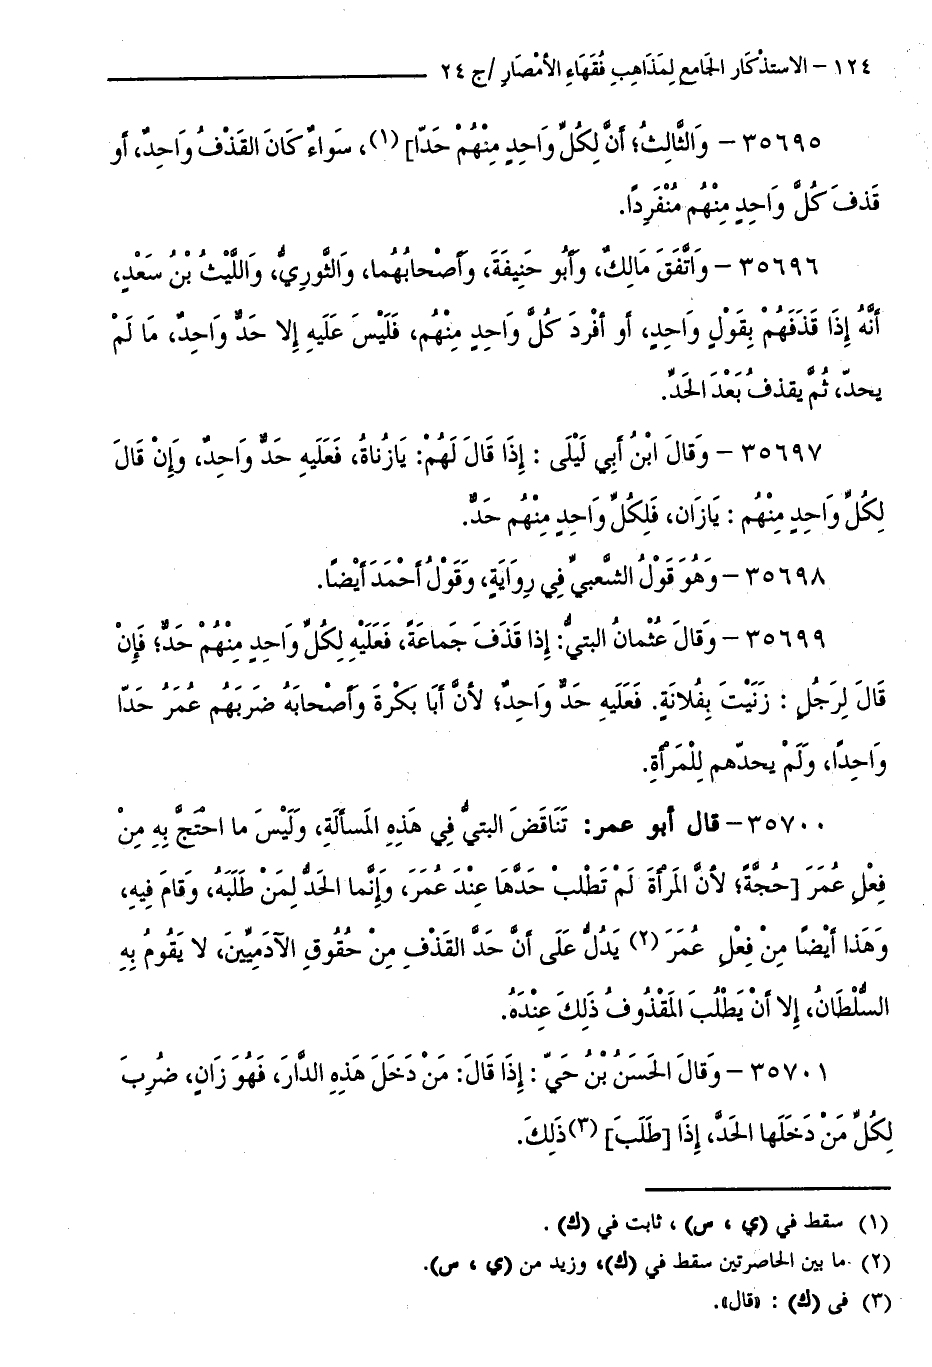 ١٢٤ - الاستذْكَار الجَامع لِمَذَاهِبِ فُقَهَاءِ الأمْصَارِ / ج ٢٤
٣٥٦٩٥ - وَالثَّالِثُ؛ أنَّ لِكُلِّ وَاحِدٍ مِنْهُمْ حَدّا] (١)، سَواءٌ كَانَ القَذْفُ وَاحِدٌ، أو
قَذفَ كُلَّ وَاحِدٍ مِنْهُم مُنْفَرِدًا.
٣٥٦٩٦ - وَاتَّفَقَ مَالِكٌ، وَأبُو حَنِيفَةَ، وَأصْحابُهُما، وَالثَّورِيُّ، وَاللَّيْثُ بْنُ سَعْدٍ،
أنَّهُ إِذَا قَذَفَهُمْ بِقَولٍ وَاحِدٍ، أو أفْردَ كُلَّ وَاحِدٍ مِنْهُم، فَلَيْسَ عَلَيهِ إِلا حَدٌّ وَاحِدٌ، مَا لَمْ
يحدّ، ثُمَّ يقذفُ بَعْدَ الحَدِّ.
٣٥٦٩٧ - وَقَالَ ابْنُ أبِي لَيْلَى : إِذَا قَالَ لَهُمْ: يَازُناةُ، فَعَلَيهِ حَدٌّ وَاحِدٌ، وَإِنْ قَالَ
لِكُلِّ وَاحِدٍ مِنْهُم : يَازَان، فَلِكُلِّ وَاحِدٍ مِنْهُم حَدٌّ.
٣٥٦٩٨ - وَهُوَ قَوْلُ الشَّعبيِّ فِي رِوَايَةٍ، وَقَوْلُ أحْمَدَ أيْضًا.
٣٥٦٩٩ - وَقَالَ عُثْمانُ البتيُّ: إِذا قَذَفَ جَماعَةً، فَعَلَيْهِ لِكُلِّ وَاحِدٍ مِنْهُمْ حَدٌّ؛ فَإِنْ
قَالَ لِرَجُلٍ : زَنَيْتَ بِفُلانَةٍ. فَعَلَيهِ حَدٌّ وَاحِدٌ؛ لأنَّ أبَا بَكْرةَ وَأصْحابَهُ ضَرَبَهُم عُمَرُ حَدّا
وَاحِدًا، وَلَمْ يحدّهم لِلْمَرْأةِ.
٣٥٧٠٠ - قال أبو عمر: تَنَاقَضَ البتيُّ فِي هَذِهِ المَسألَةِ، وَلَيْسَ ما احْتَجَّ بِهِ مِنْ
فِعْلِ عُمَرَ [حُجَّةً؛ لأنَّ المَرْأةَ لَمْ تَطْلبْ حَدَّهَا عِنْدَ عُمَرَ، وَإِنَّما الحَدُّ لِمَنْ طَلَبَهُ، وَقَامَ فِيهِ،
وَهَذَا أيْضًا مِنْ فِعْلِ عُمَرَ (٢) يَدُلُّ عَلَى أنَّ حَدَّ القَذْفِ مِنْ حُقُوقِ الآدَمِيِّينَ، لا يَقُومُ بِهِ
السُّلْطَانُ، إِلا أنْ يَطْلُبَ المَقْذُوفُ ذَلِكَ عِنْدَهُ.
٣٥٧٠١ - وَقَالَ الحَسَنُ بْنُ حَيّ : إِذَا قَالَ: مَنْ دَخَلَ هَذِهِ الدَّارَ، فَهُوَ زَانٍ، ضُرِبَ
لِكُلِّ مَنْ دَخَلَها الحَدَّ، إِذَا [طَلَبَ] (٣) ذَلِكَ.
(١) سقط في (ي ، س) ، ثابت في (ك) .
(٢) ما بين الحاصرتين سقط في (ك)، وزيد من (ي ، س).
(٣) في (ك) : «قال».